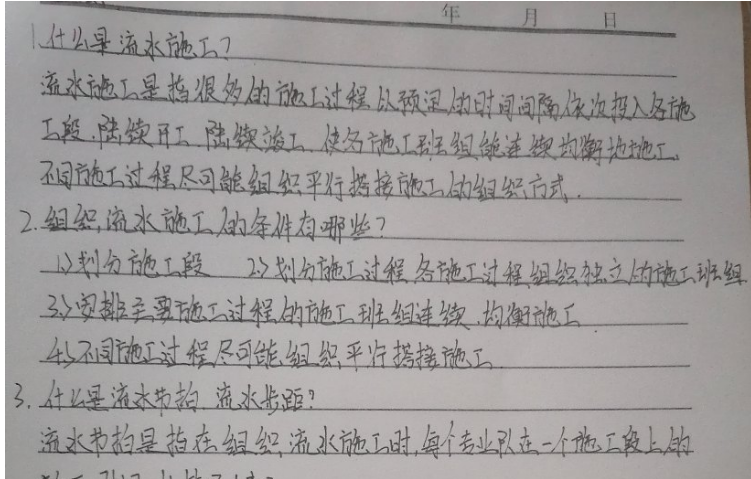 年 月 日
1.什么是流水施工?
流水施工是指很多的施工过程以预定的时间间隔依次投入各施
工段,陆续开工,陆续竣工,使各施工班组能连续均衡地施工,
不同施工过程尽可能组织平行搭接施工的组织方式.
2.组织流水施工的条件有哪些?
1>划分施工段 2>划分施工过程,各施工过程组织独立的施工班组
3>安排主要施工过程的施工班组连续,均衡施工
4>不同施工过程尽可能组织平行搭接施工
3.什么是流水节拍,流水步距?
流水节拍是指在组织流水施工时,每个专业队在一个施工段上的